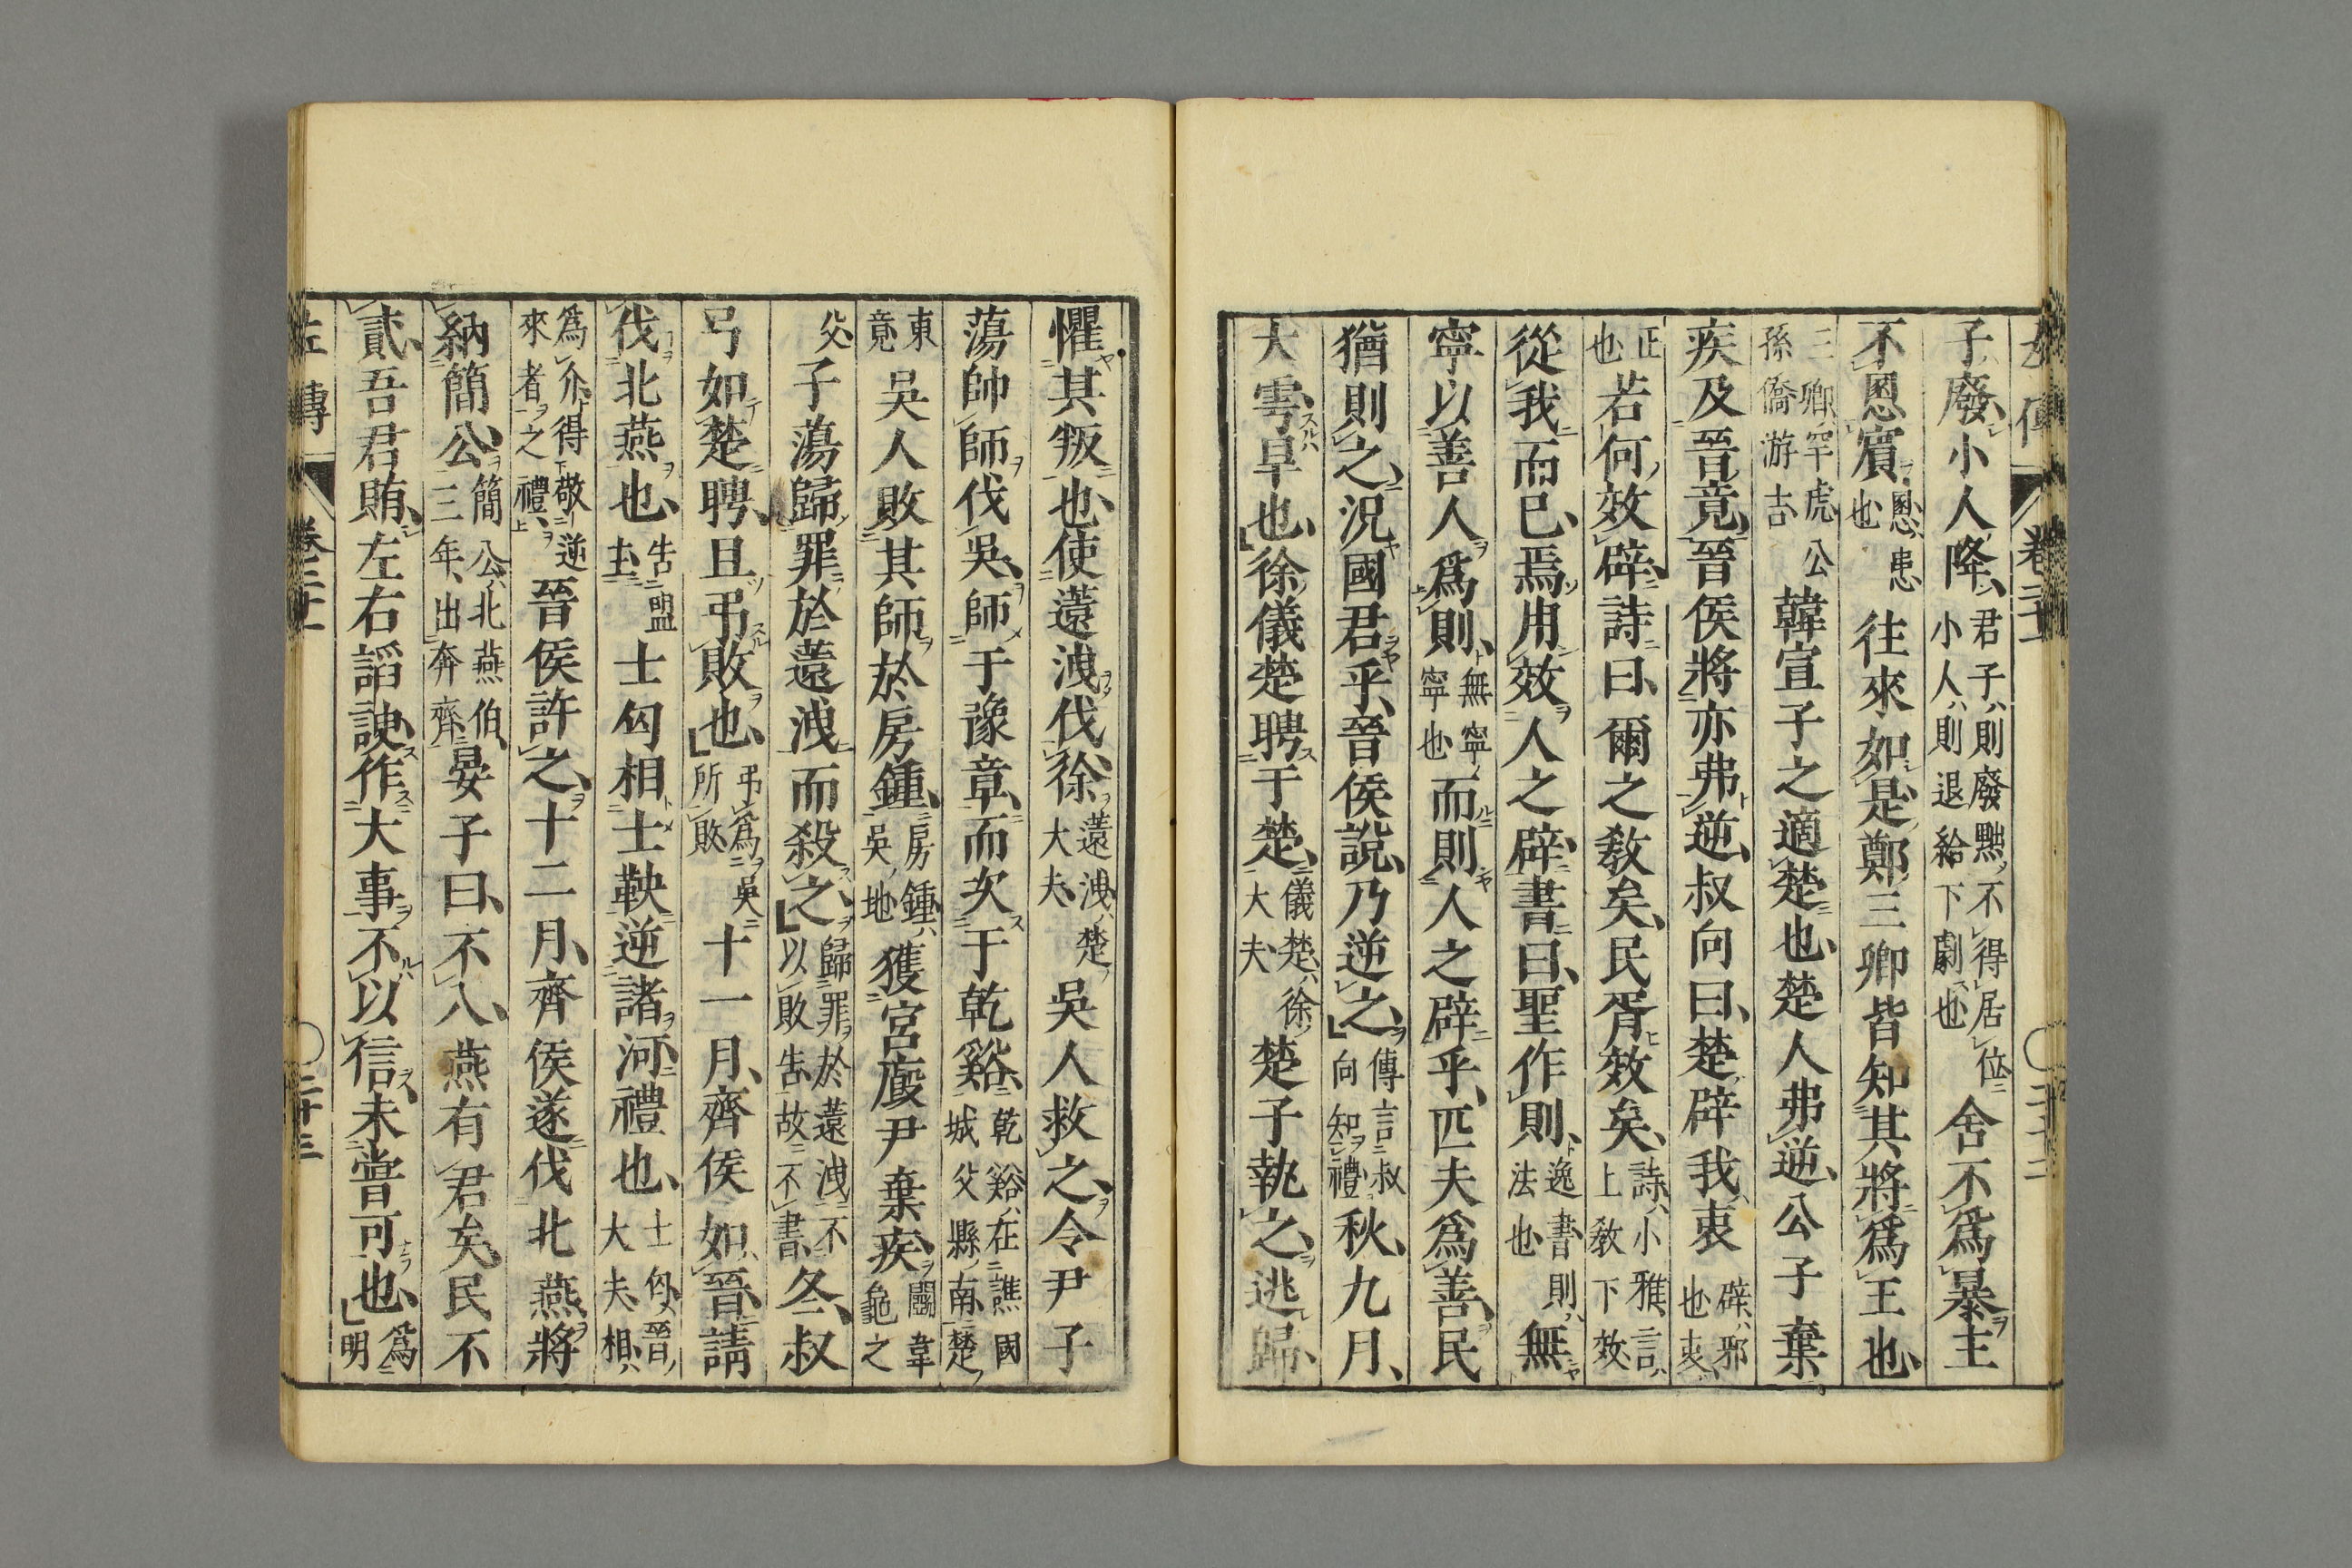 子廢、小人降、君子、則廢黜、不得居位小人、則退給下劇也舍不爲暴主
不慁賓、慁、患也往來如是、鄭三卿皆知其將爲王也、
三卿、罕虎、公孫僑游吉韓宣子之適楚也、楚人弗逆、公子棄
疾及晉竟、晉侯將亦弗逆、叔向曰、楚辟我衷辟、邪也衷、
正也若何效辟、詩曰、爾之敎矣、民胥效矣、詩、小雅、言、上敎下效
從我而已、焉用效人之辟、書曰、聖作則、逸書則、法也無
寧以善人爲則、無寧、寧也而則人之辟乎、匹夫爲善、民
猶則之、況國君乎、晉侯說、乃逆之、傳言叔向知禮秋、九月、
大雩旱也、徐儀楚聘于楚、儀楚、徐大夫楚子執之、逃歸、
懼其叛也、使薳洩伐徐、薳洩、楚大夫吳人救之、令尹子
蕩帥師伐吳、師于豫章、而次于乾谿、乾谿、在譙國城父縣、南、楚
東竟吳人敗其師於房鍾、房鍾、吳地獲宮廄尹棄疾、鬭韋龜之
父子蕩歸罪於薳洩而殺之、歸罪於薳洩不以敗告、故不書、冬、叔
弓如楚聘、且弔敗也、弔爲吳所敗十一月、齊侯如晉、請
伐北燕也、告盟主士匃相士鞅逆諸河、禮也、士匃、晉大夫、相、
爲介、得敬逆來者之禮、晉侯許之、十二月、齊侯遂伐北燕、將
納簡公、簡公、北燕伯、三年、出奔齊晏子曰、不入、燕有君矣、民不
貳、吾君賄、左右諂諛、作大事不以信、未嘗可也、爲明
左傳 卷二十一 二十三